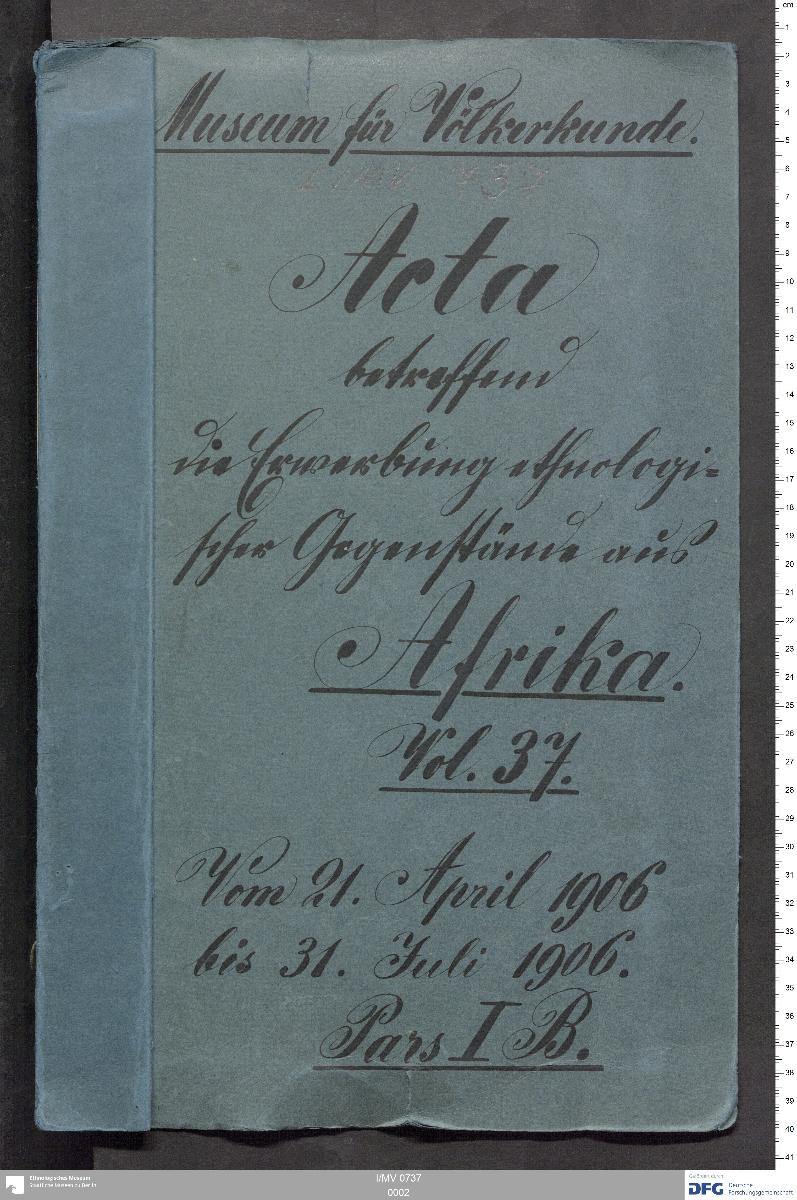 Museum für Völkerkunde.
I/MV. 737
Acta
betreffend
die Erwerbung ethnologi=
scher Gegenstände aus
Afrika.
Vol. 37.
Vom 21. April 1906
bis 31. Juli 1906.
Pars I B.
cm
1
2
3
4
5
6
7
8
9
10
11
12
13
14
15
16
17
18
19
20
21
22
23
24
25
26
27
28
29
30
31
32
33
34
35
36
37
38
39
40
41
Ethnologisches Museum
Staatliche Museen zu Berlin
I/MV 0737
0002
Gefördert durch
DFG Deutsche
Forschungsgemeinschaft